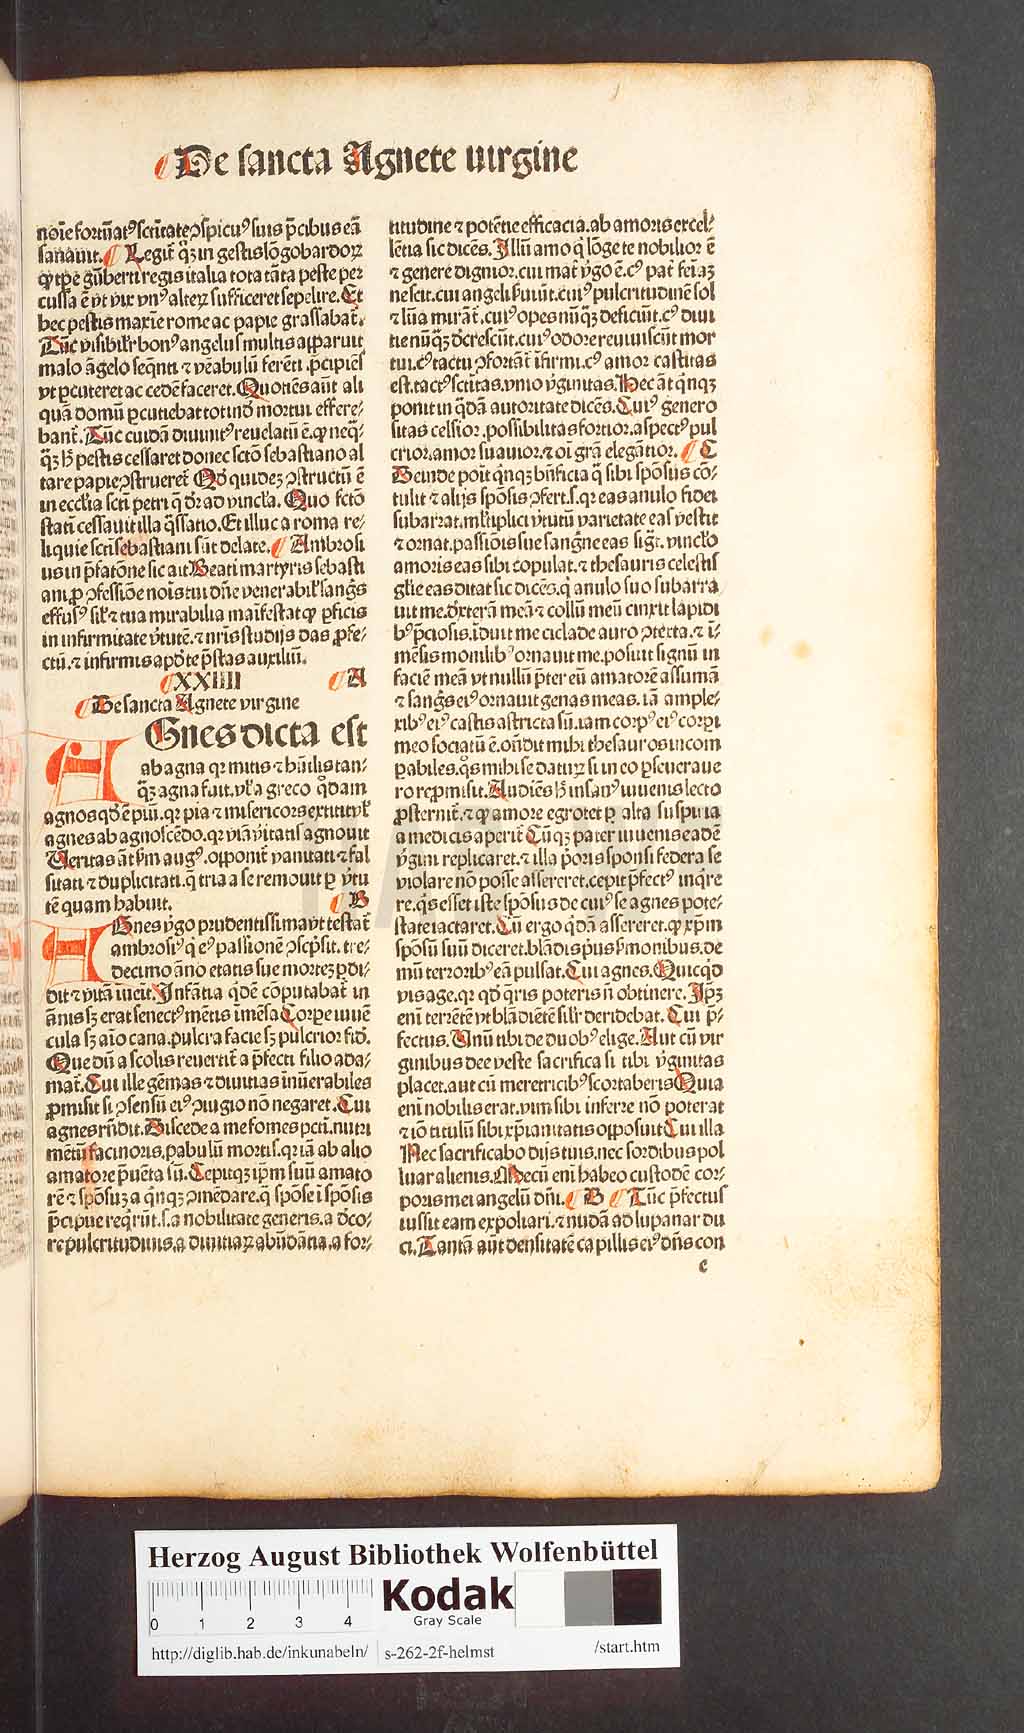 De sancta Agnete uirgine
noīe fortūatꝰ sctītate ꝯspicuꝰ suis p̄cibus eā
sanauit. Legit᷑ q̄ʒ in gestis lōgobardoꝝ
ꝙ tꝑe gūberti regis italia tota tāta peste per
cussa ē vt vix vnꝰ alteꝝ sufficeret sepelire. Et
hec pestis maxīe rome ac papie grassabat᷑.
Tūc visibilr̄ bonꝰ angelus multis apparuit
malo āgelo seq̄nti ⁊ veābulū ferēti. p̄cipiēs
vt ꝑcuteret ac cedē faceret. Quotiēs aūt ali
quā domū ꝑcutiebat tot inđ mortui effere⸗
bant᷑. Tūc cuidā diuinitꝰ reuelatū ē. ꝙ neq̄⸗
q̄ʒ h̄ pestis cessaret donec sctō sebastiano al
tare papie ꝯstrueret᷑ Qđ quideʒ ꝯstructū ē
in eccl̄ia scti petri q̄ dr̄ ad vincl̄a. Quo fctō
statī cessauit illa q̄ssatio. Et illuc a roma re⸗
liquie scti sebastiani sūt delate. Ambrosi
us in p̄fatōne sic ait. Beati martyris sebasti
ani ꝓ ꝯfessiōe noīs tui dn̄e venerabil᷑ sangͥs
effusꝰ sil᷑ ⁊ tua mirabilia maīfestat ꝙ ꝑficis
in infirmitate v̄tutē. ⁊ nr̄is studijs das ꝓfe⸗
ctū. ⁊ infirmis a pđte p̄stas auxiliū.
XXIIII A
De sancta Agnete virgine
AGnes dicta est
ab agna qꝛ mitis ⁊ hūilis tan⸗
q̄ʒ agna fuit. vl᷑ a greco qͦdam
agnos qđ ē piū. qꝛ pia ⁊ misericors extitit vl᷑
agnes ab agnoscēdo. qꝛ viā v̄itatis agnouit
Ueritas āt ẜm augꝰ. opponit᷑ vanitati ⁊ fal
sitati ⁊ duplicitati. q̄ tria a se remouit ꝑ v̄tu
tē quam habuit. B
AGnes v̄go prudentissima vt testat᷑
ambrosiꝰ qͥ eiꝰ passionē ꝯscp̄sit. tre⸗
decimo āno etatis sue morteʒ ꝑdi⸗
dit ⁊ vitā inuenit. Infātia qͥdē cōputabat᷑ in
ānis sʒ erat senectꝰ mētis īmēsa Corꝑe iuuē
cula sʒ aīo cana. pulcra facie sʒ pulcrior fiđ.
Que dū a scolis reuertit᷑ a p̄fecti filio ada⸗
mat᷑. Cui ille gēmas ⁊ diuitias īnūerabiles
ꝓmisit si ꝯsensū eiꝰ ꝯiugio nō negaret. Cui
agnes rn̄dit. Discede a me fomes pcti. nutri
mētū facinoris. pabulū mortis. qꝛ iā ab alio
amatore p̄uēta sū. Cepitqʒ ip̄m suū amato
rē ⁊ spōsuʒ a q̄nqʒ ꝯmēdare. q̄ spōse ī spōsis
p̄cipue reqͥrūt. s. a nobilitate generis. a đco⸗
re pulcritudinis. a diuitiaꝝ abūdātia. a for⸗
titudine ⁊ potētie efficacia. ab amoris excel⸗
lētia sic dicēs. Illū amo qͥ lōge te nobilior ē
⁊ genere dignior. cui mat᷑ v̄go ē. cꝰ pat᷑ feīaʒ
nescit. cui angeli ẜuiūt. cuiꝰ pulcritudinē sol
⁊ lūa mirāt᷑. cuiꝰ opes nūqʒ deficiūt. cꝰ diui
tie nūqʒ đcrescūt. cuiꝰ odore reuiuiscūt mor
tui. cꝰ tactu ꝯfortāt᷑ īfirmi. cꝰ amor castitas
est. tactꝰ sctītas. vnio v̄ginitas. Hec āt q̄nqʒ
ponit in qͣdā autoritate dicēs. Cuiꝰ genero
sitas celsior. possibilitas fortior. aspectꝰ pul
crior. amor suauior. ⁊ oī grā elegātior. C
Deinde poīt q̄nqʒ bn̄ficia q̄ sibi spōsus cō⸗
tulit ⁊ alijs spōsis ꝯfert. s. qꝛ eas anulo fidei
subarrat. ml᷑tiplici v̄tutū varietate eas vestit
⁊ ornat. passiōis sue sangͥne eas sigͣt. vincl᷑o
amoris eas sibi copulat. ⁊ thesauris celestis
gl᷑ie eas ditat sic dicēs. qͥ anulo suo subarra
uit me. đxterā meā ⁊ collū meū cinxit lapidi
bꝰ p̄ciosis. īduit me ciclade auro ꝯtexta. ⁊ ī⸗
mēsis monilibꝰ ornauit me. posuit signū in
faciē meā vt nullū p̄ter eū amatorē assumā
⁊ sangͥs eiꝰ ornauit genas meas. iā ample⸗
xibꝰ eiꝰ castis astricta sū. iam corpꝰ eiꝰ corꝑi
meo sociatū ē. on̄dit mihi thesauros incom
ꝑabiles. qͦs mihi se datuꝝ si in eo ꝑseueraue
ro repromisit. Audiēs h̄ insanꝰ iuuenis lecto
ꝓsternit᷑. ⁊ ꝙ amore egrotet ꝑ alta suspiria
a medicis aperit᷑ Cūqʒ pater iuuenis eadē
v̄gini replicaret. ⁊ illa p̄oris sponsi federa se
violare nō posse assereret. cepit p̄fectꝰ inqͥre
re. qͥs esset iste spōsus de cuiꝰ se agnes pote⸗
state iactaret. Cū ergo qͥdā assereret. ꝙ xp̄m
spōsū suū diceret. blādis p̄us ẜmonibus. de
mū terroribꝰ eā pulsat. Cui agnes. Quicqͥd
vis age. qꝛ qđ q̄ris poteris n̄ obtinere. Ipʒ
enī terrētē vt blādiētē sil᷑r deridebat. Cui p̄⸗
fectus. Unū tibi de duobꝰ elige. Aut cū vir
ginibus dee veste sacrifica si tibi v̄ginitas
placet. aut cū meretricibꝰ scortaberis Quia
eni nobilis erat. vim sibi inferre nō poterat
⁊ iō titulū sibi xp̄ianitatis opposuit Cui illa
Nec sacrificabo dijs tuis. nec sordibus pol
luar alienis. Mecū enī habeo custodē cor⸗
poris mei angelū dn̄i. B Tūc p̄fectus
iussit eam expoliari. ⁊ nudā ad lupanar du
ci. Tantā aūt densitatē capillis eiꝰ dn̄s con
c
HAB WF
Herzog August Bibliothek Wolfenbüttel
0 1 2 3 4
Kodak
Gray Scale
http://diglib.hab.de/inkunabeln/ s-262-2f-helmst /start.htm